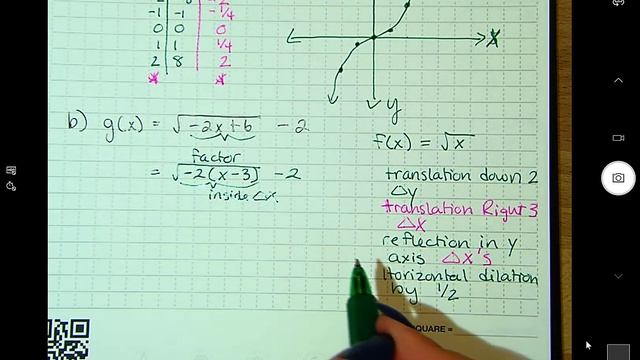 -1 -1 -1/4
0 0 0
1 1 1/4
2 8 2
* *
x
y
b) g(x) = √-2x+6 - 2
factor
= √-2(x-3) - 2
inside Δx
f(x) = √x
translation down 2
Δy
translation Right 3
Δx
reflection in y
axis Δx's
Horizontal dilation
by 1/2
SQUARE =